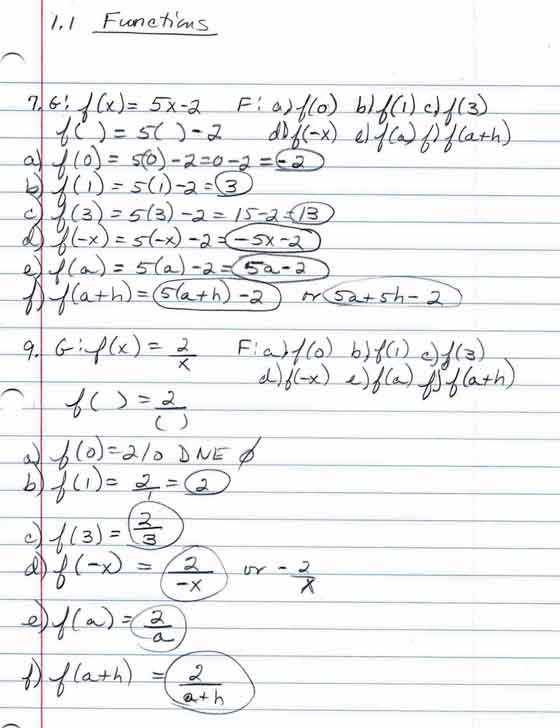 1.1 Functions
7. G: f(x) = 5x-2 F: a) f(0) b) f(1) c) f(3)
f( ) = 5( ) - 2 d) f(-x) e) f(a) f) f(a+h)
a) f(0) = 5(0) - 2 = 0 - 2 = -2
b) f(1) = 5(1) - 2 = 3
c) f(3) = 5(3) - 2 = 15 - 2 = 13
d) f(-x) = 5(-x) - 2 = -5x - 2
e) f(a) = 5(a) - 2 = 5a - 2
f) f(a+h) = 5(a+h) - 2 or 5a + 5h - 2
9. G: f(x) = 2/x F: a) f(0) b) f(1) c) f(3)
d) f(-x) e) f(a) f) f(a+h)
f( ) = 2/( )
a) f(0) = 2/0 DNE ∅
b) f(1) = 2/1 = 2
c) f(3) = 2/3
d) f(-x) = 2/-x or -2/x
e) f(a) = 2/a
f) f(a+h) = 2/a+h